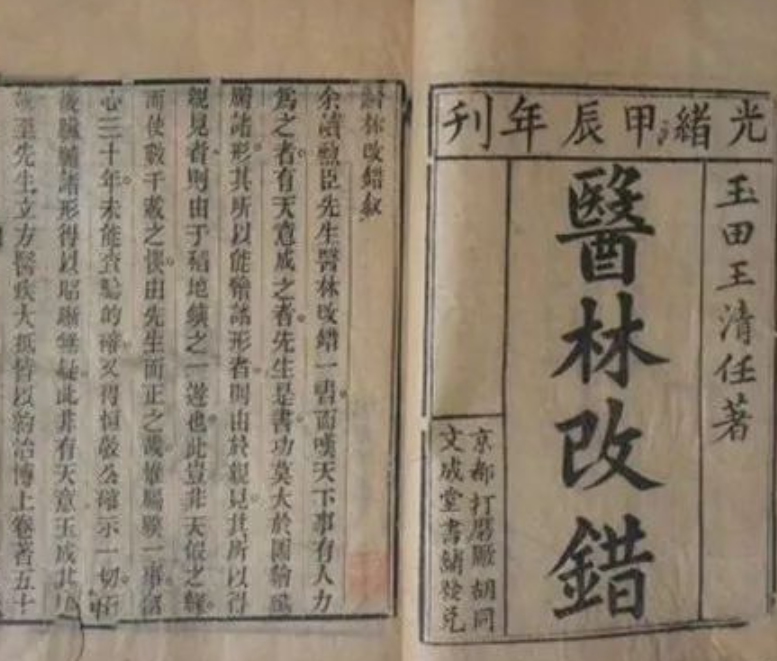 光緒甲辰年刊
玉田王清任著
醫林改錯
京都打磨厰胡同
文成堂書鋪發兌
醫林改錯叙
余讀勲臣先生醫林改錯一書而嘆天下事有人力
爲之者有天意成之者先生是書功莫大於圖繪臟
腑諸形其所以能繪諸形者則由於親見其所以得
親見者則由于稻地鎮之一遊也此豈非天假之緣
而使數千載之悞由先生而正之哉惟膈膜一事留
心三十年未能查騐的確又得恒敬公確示一切而
後臟腑諸形得以昭晰無疑此非有天意玉成其
至先生立方醫疾大抵皆以約治博上卷著五十